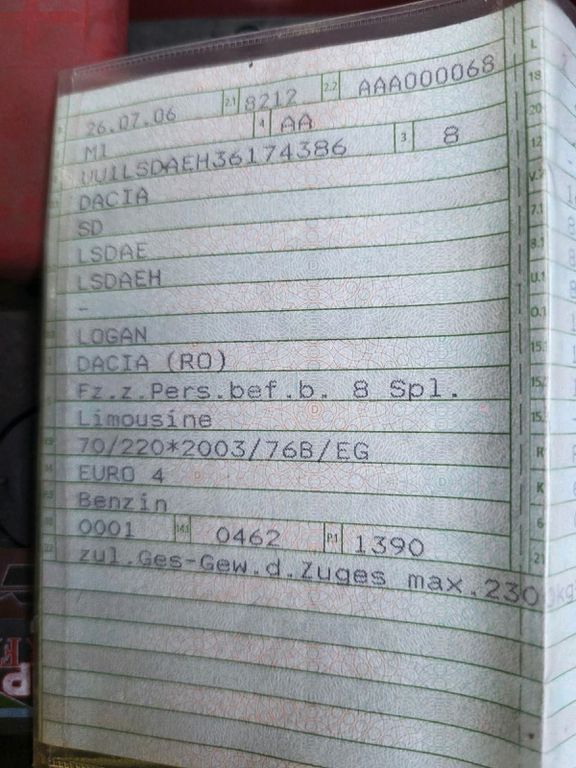 26.07.06 2.1 8212 2.2 AAA000068
M1 4 AA
UU1LSDAEH36174386 3 8
DACIA
SD
LSDAE
LSDAEH
-
LOGAN
DACIA (RO)
Fz.z.Pers.bef.b. 8 Spl.
Limousine
70/220*2003/76B/EG
EURO 4
Benzin
0001 14.1 0462 P.1 1390
zul.Ges-Gew.d.Zuges max.230 kg
L
18
20
12
V.7
7.1
8.1
U.1
O.1
15.1
15.2
15.
R
K
6
21